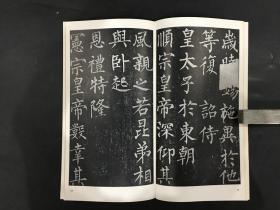 歲時錫施異於他
等復詔侍
皇太子於東朝
順宗皇帝深仰其
風親之若昆弟相
與臥起
恩禮特隆
憲宗皇帝數幸其